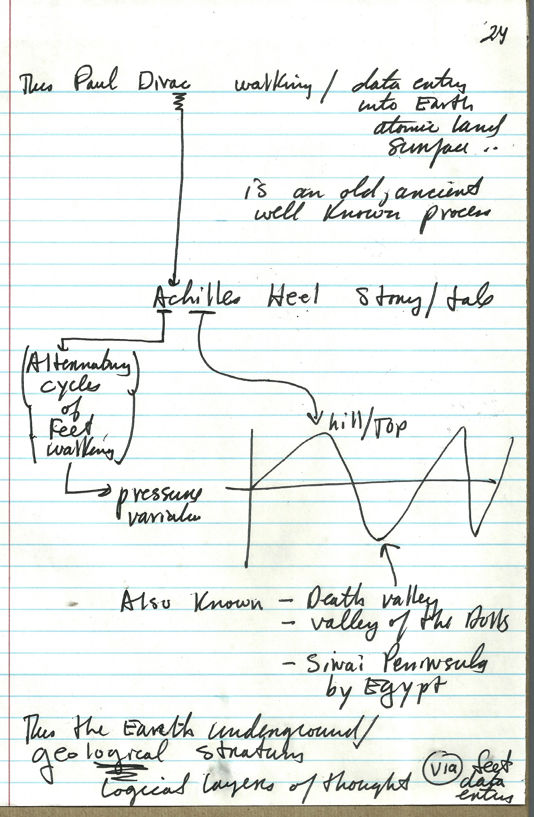 24
Thus Paul Dirac walking / data entry
into Earth
atomic land
surface ..
is an old, ancient
well known process
Achilles Heel Story / tale
(Alternating
cycles
of
Feet
walking)
hill/Top
pressure
variable
Also Known – Death valley
– valley of the Dolls
– Sinai Peninsula
by Egypt
Thus the Earth underground/
geological stratums
Logical Layers of thought via feet
data
entry